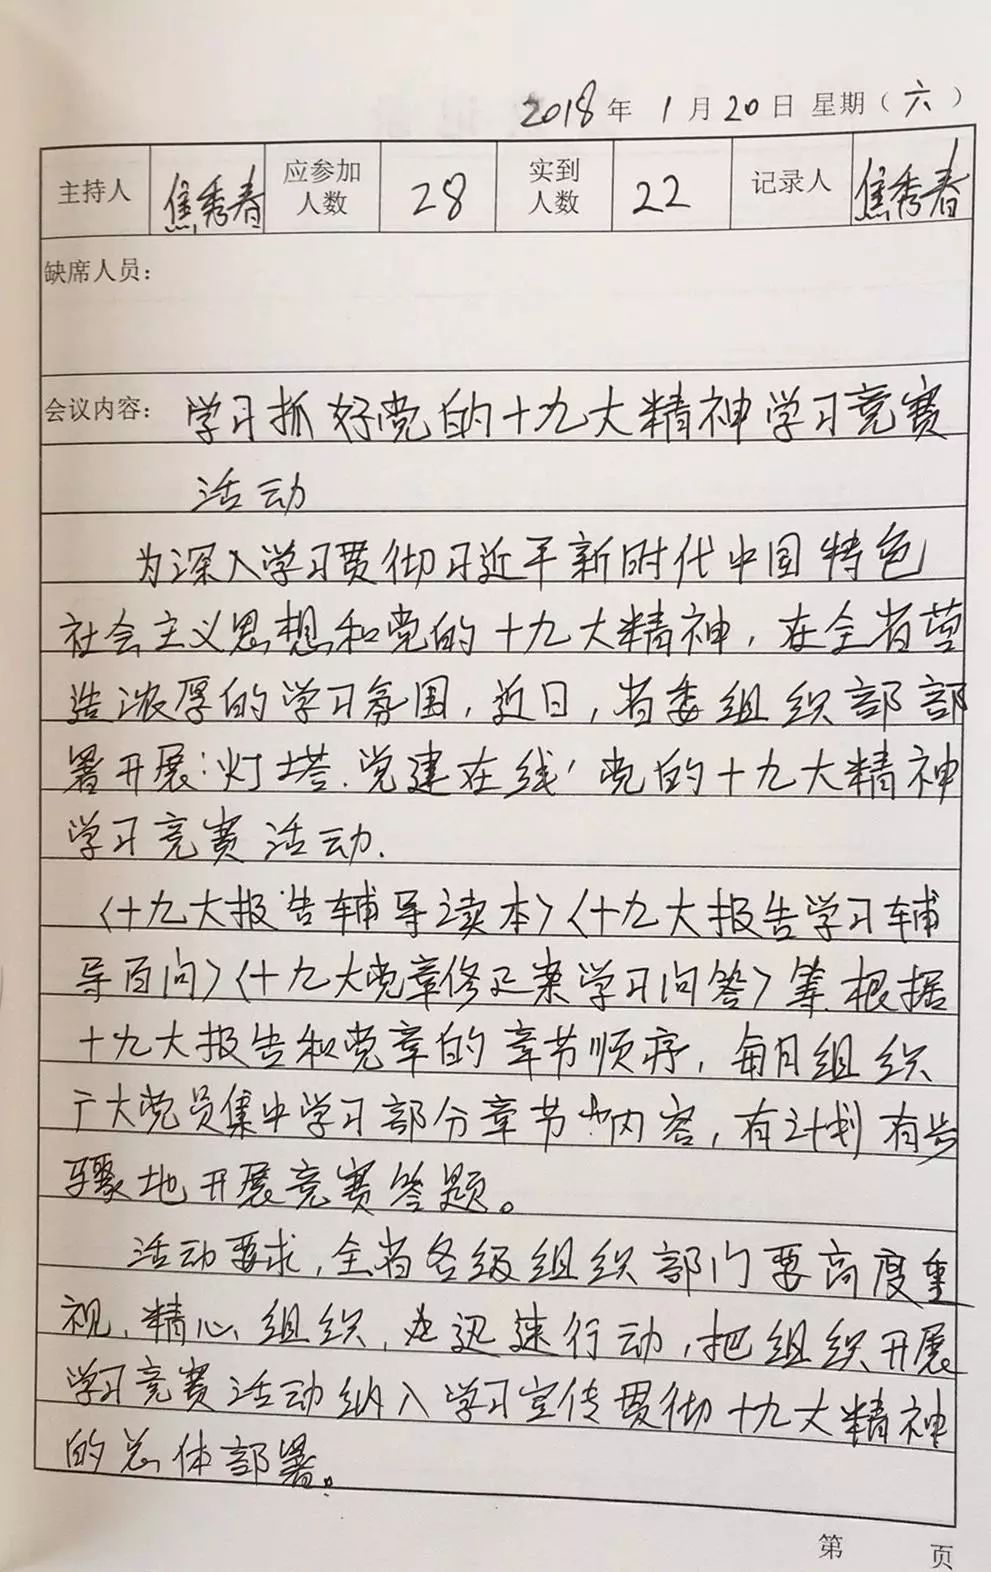 2018年1月20日 星期(六)
主持人 焦秀春 应参加人数 28 实到人数 22 记录人 焦秀春
缺席人员:
会议内容: 学习抓好党的十九大精神学习竞赛
活动
为深入学习贯彻习近平新时代中国特色
社会主义思想和党的十九大精神,在全省营
造浓厚的学习氛围,近日,省委组织部部
署开展:灯塔.党建在线'党的十九大精神
学习竞赛活动.
〈十九大报告辅导读本〉〈十九大报告学习辅
导百问〉〈十九大党章修正案学习问答〉等.根据
十九大报告和党章的章节顺序,每月组织
广大党员集中学习部分章节内容,有计划有步
骤地开展竞赛答题。
活动要求,全省各级组织部门要高度重
视,精心组织,迅速行动,把组织开展
学习竞赛活动纳入学习宣传贯彻十九大精神
的总体部署。
第 页